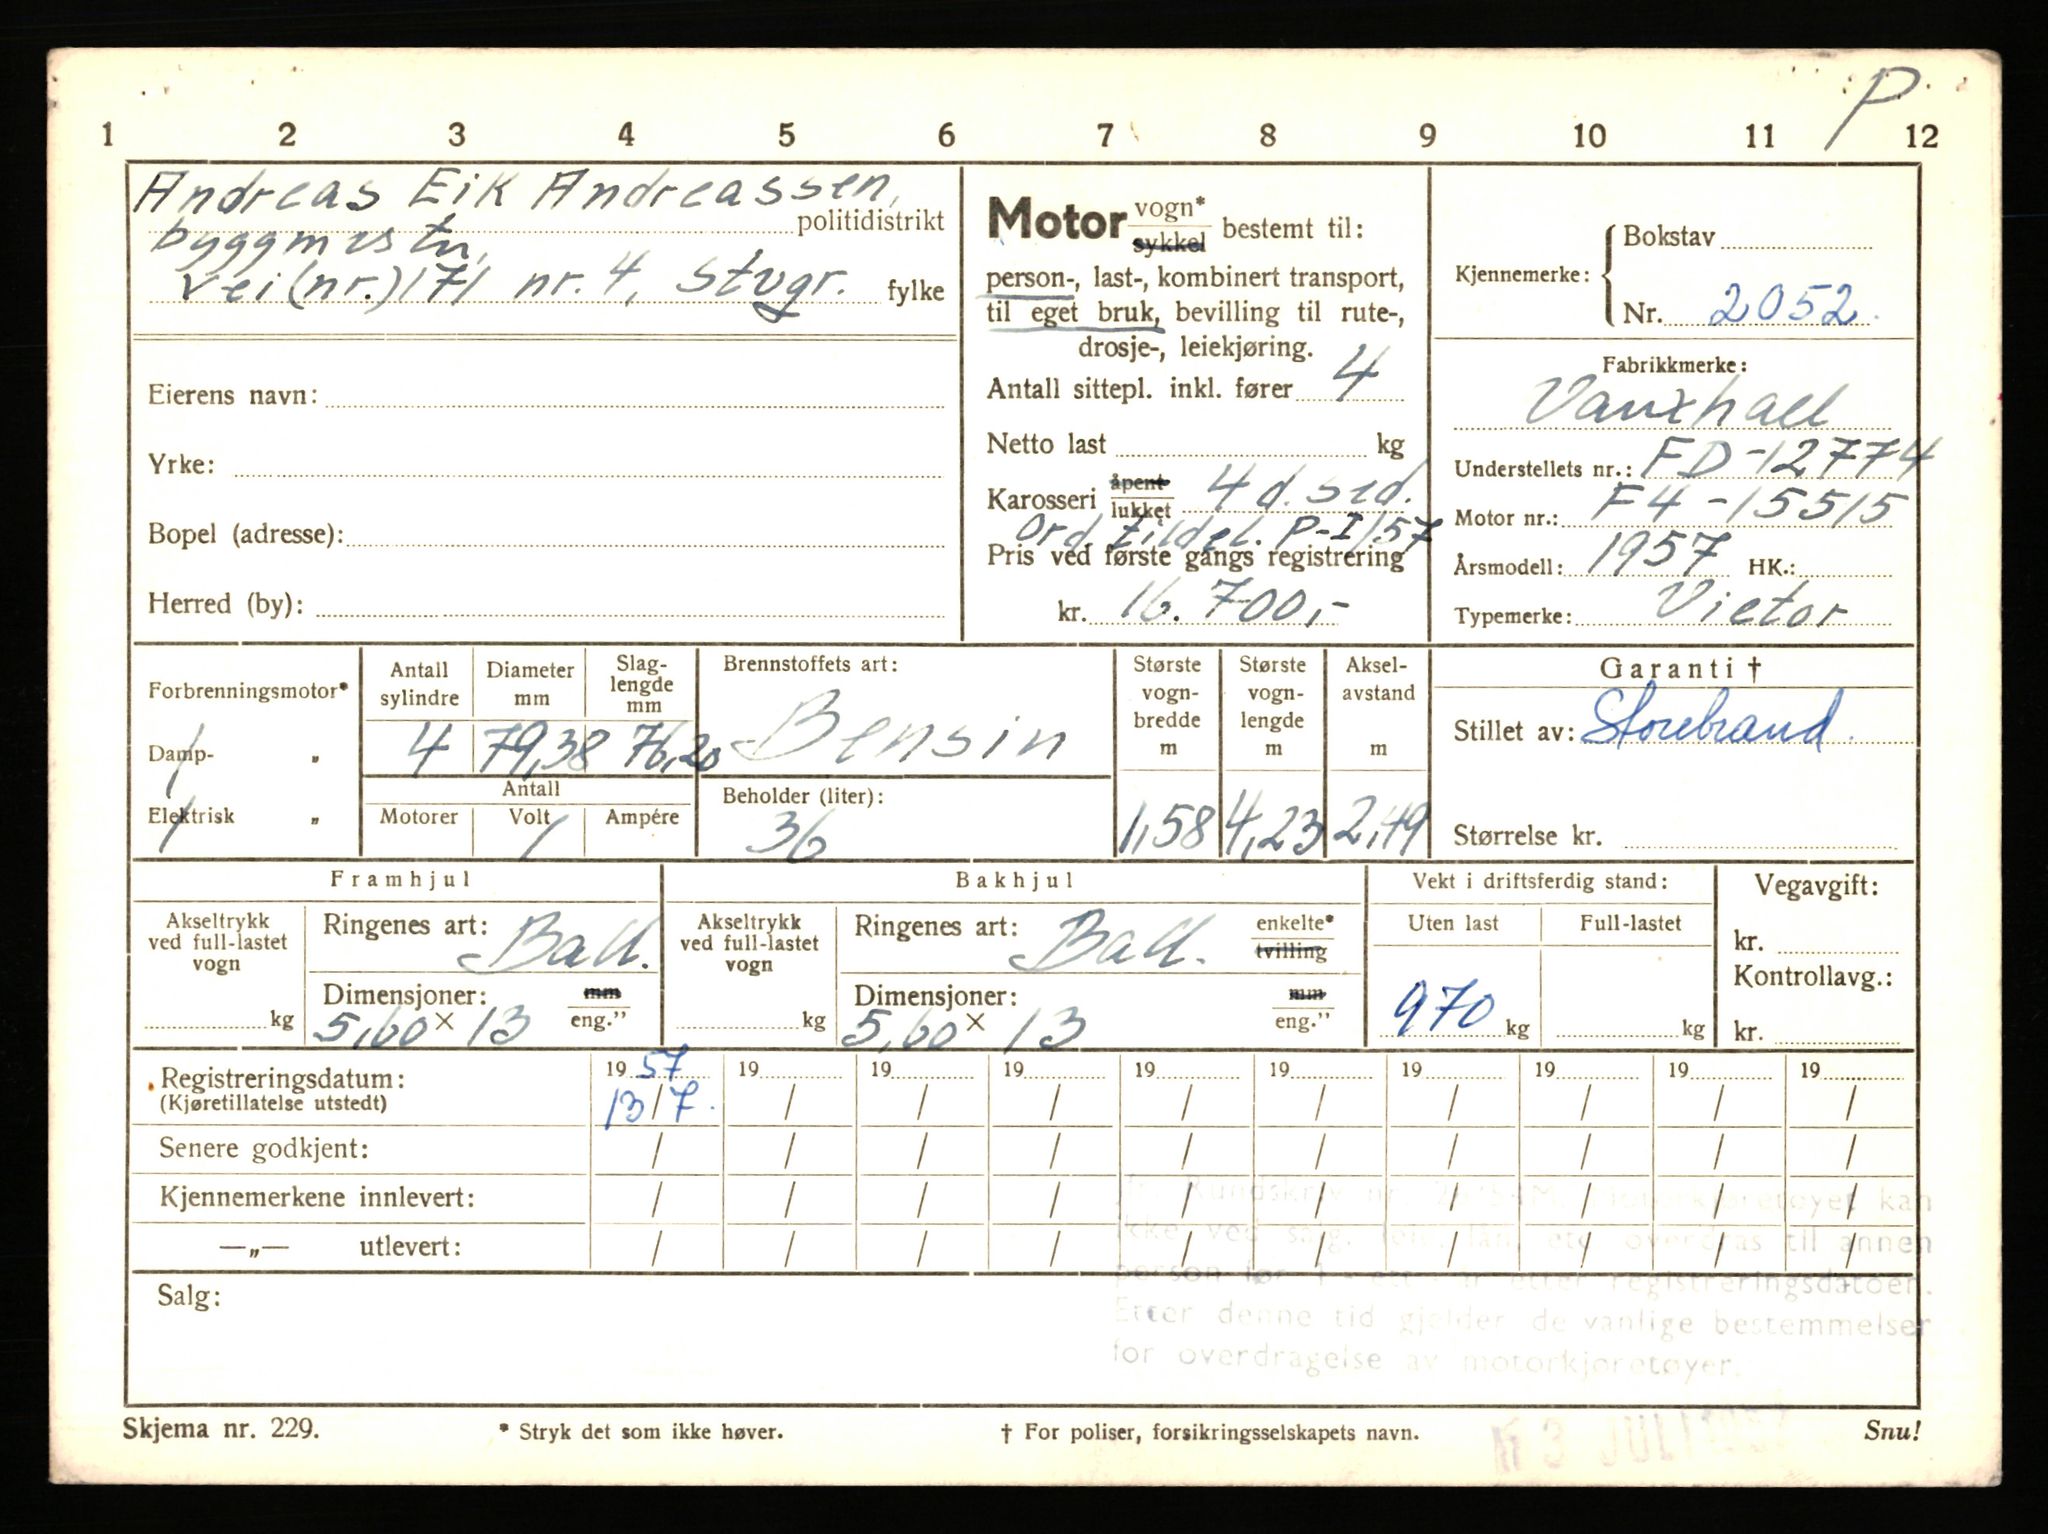 P.
1 2 3 4 5 6 7 8 9 10 11 12
Andreas Eik Andreassen,
politidistrikt
byggmester,
vei (nr.) 171 nr. 4, Stvgr. fylke
Eierens navn:
Yrke:
Bopel (adresse):
Herred (by):
Motor vogn* sykkel bestemt til:
person-, last-, kombinert transport,
til eget bruk, bevilling til rute-,
drosje-, leiekjøring.
Antall sittepl. inkl. fører 4
Netto last kg
Karosseri åpent lukket 4 d. sed.
Ord. tildel. P-I/57
Pris ved første gangs registrering
kr. 16.700,-
Kjennemerke: Bokstav
Nr. 2052.
Fabrikkmerke:
Vauxhall
Understellets nr.: FD-12774
Motor nr.: F4-15515
Årsmodell: 1957 HK.:
Typemerke: Victor
Forbrenningsmotor*
Damp- „
Elektrisk „
Antall sylindre
4
Diameter mm
79,38
Slag-lengde mm
76,20
Antall
Motorer Volt Ampére
Brennstoffets art:
Bensin
Beholder (liter):
36
Største vogn-bredde m
1,58
Største vogn-lengde m
4,23
Aksel-avstand m
2,49
Garanti †
Stillet av: Storebrand.
Størrelse kr.
Framhjul
Akseltrykk ved full-lastet vogn
kg
Ringenes art: Ball.
Dimensjoner: mm eng."
5,60 x 13
Bakhjul
Akseltrykk ved full-lastet vogn
kg
Ringenes art: Ball. enkelte* tvilling
Dimensjoner: mm eng."
5,60 x 13
Vekt i driftsferdig stand:
Uten last Full-lastet
970 kg kg
Vegavgift:
kr.
Kontrollavg.:
kr.
Registreringsdatum: 1957 19 19 19 19 19 19 19 19 19
(Kjøretillatelse utstedt) 13/7. / / / / / / / / /
Senere godkjent: / / / / / / / / / /
Kjennemerkene innlevert: / / / / / / / / / /
—„— utlevert: / / / / / / / / / /
Rundskriv nr. Motorkjøretøyet kan
ikke ved salg, leie, lån, etc overdras til annen
person før 1 - ett - år etter registreringsdatoen.
Etter denne tid gjelder de vanlige bestemmelser
for overdragelse av motorkjøretøyer.
Salg:
Skjema nr. 229.
* Stryk det som ikke høver.
† For poliser, forsikringsselskapets navn.
Snu!
13 JULI 1957